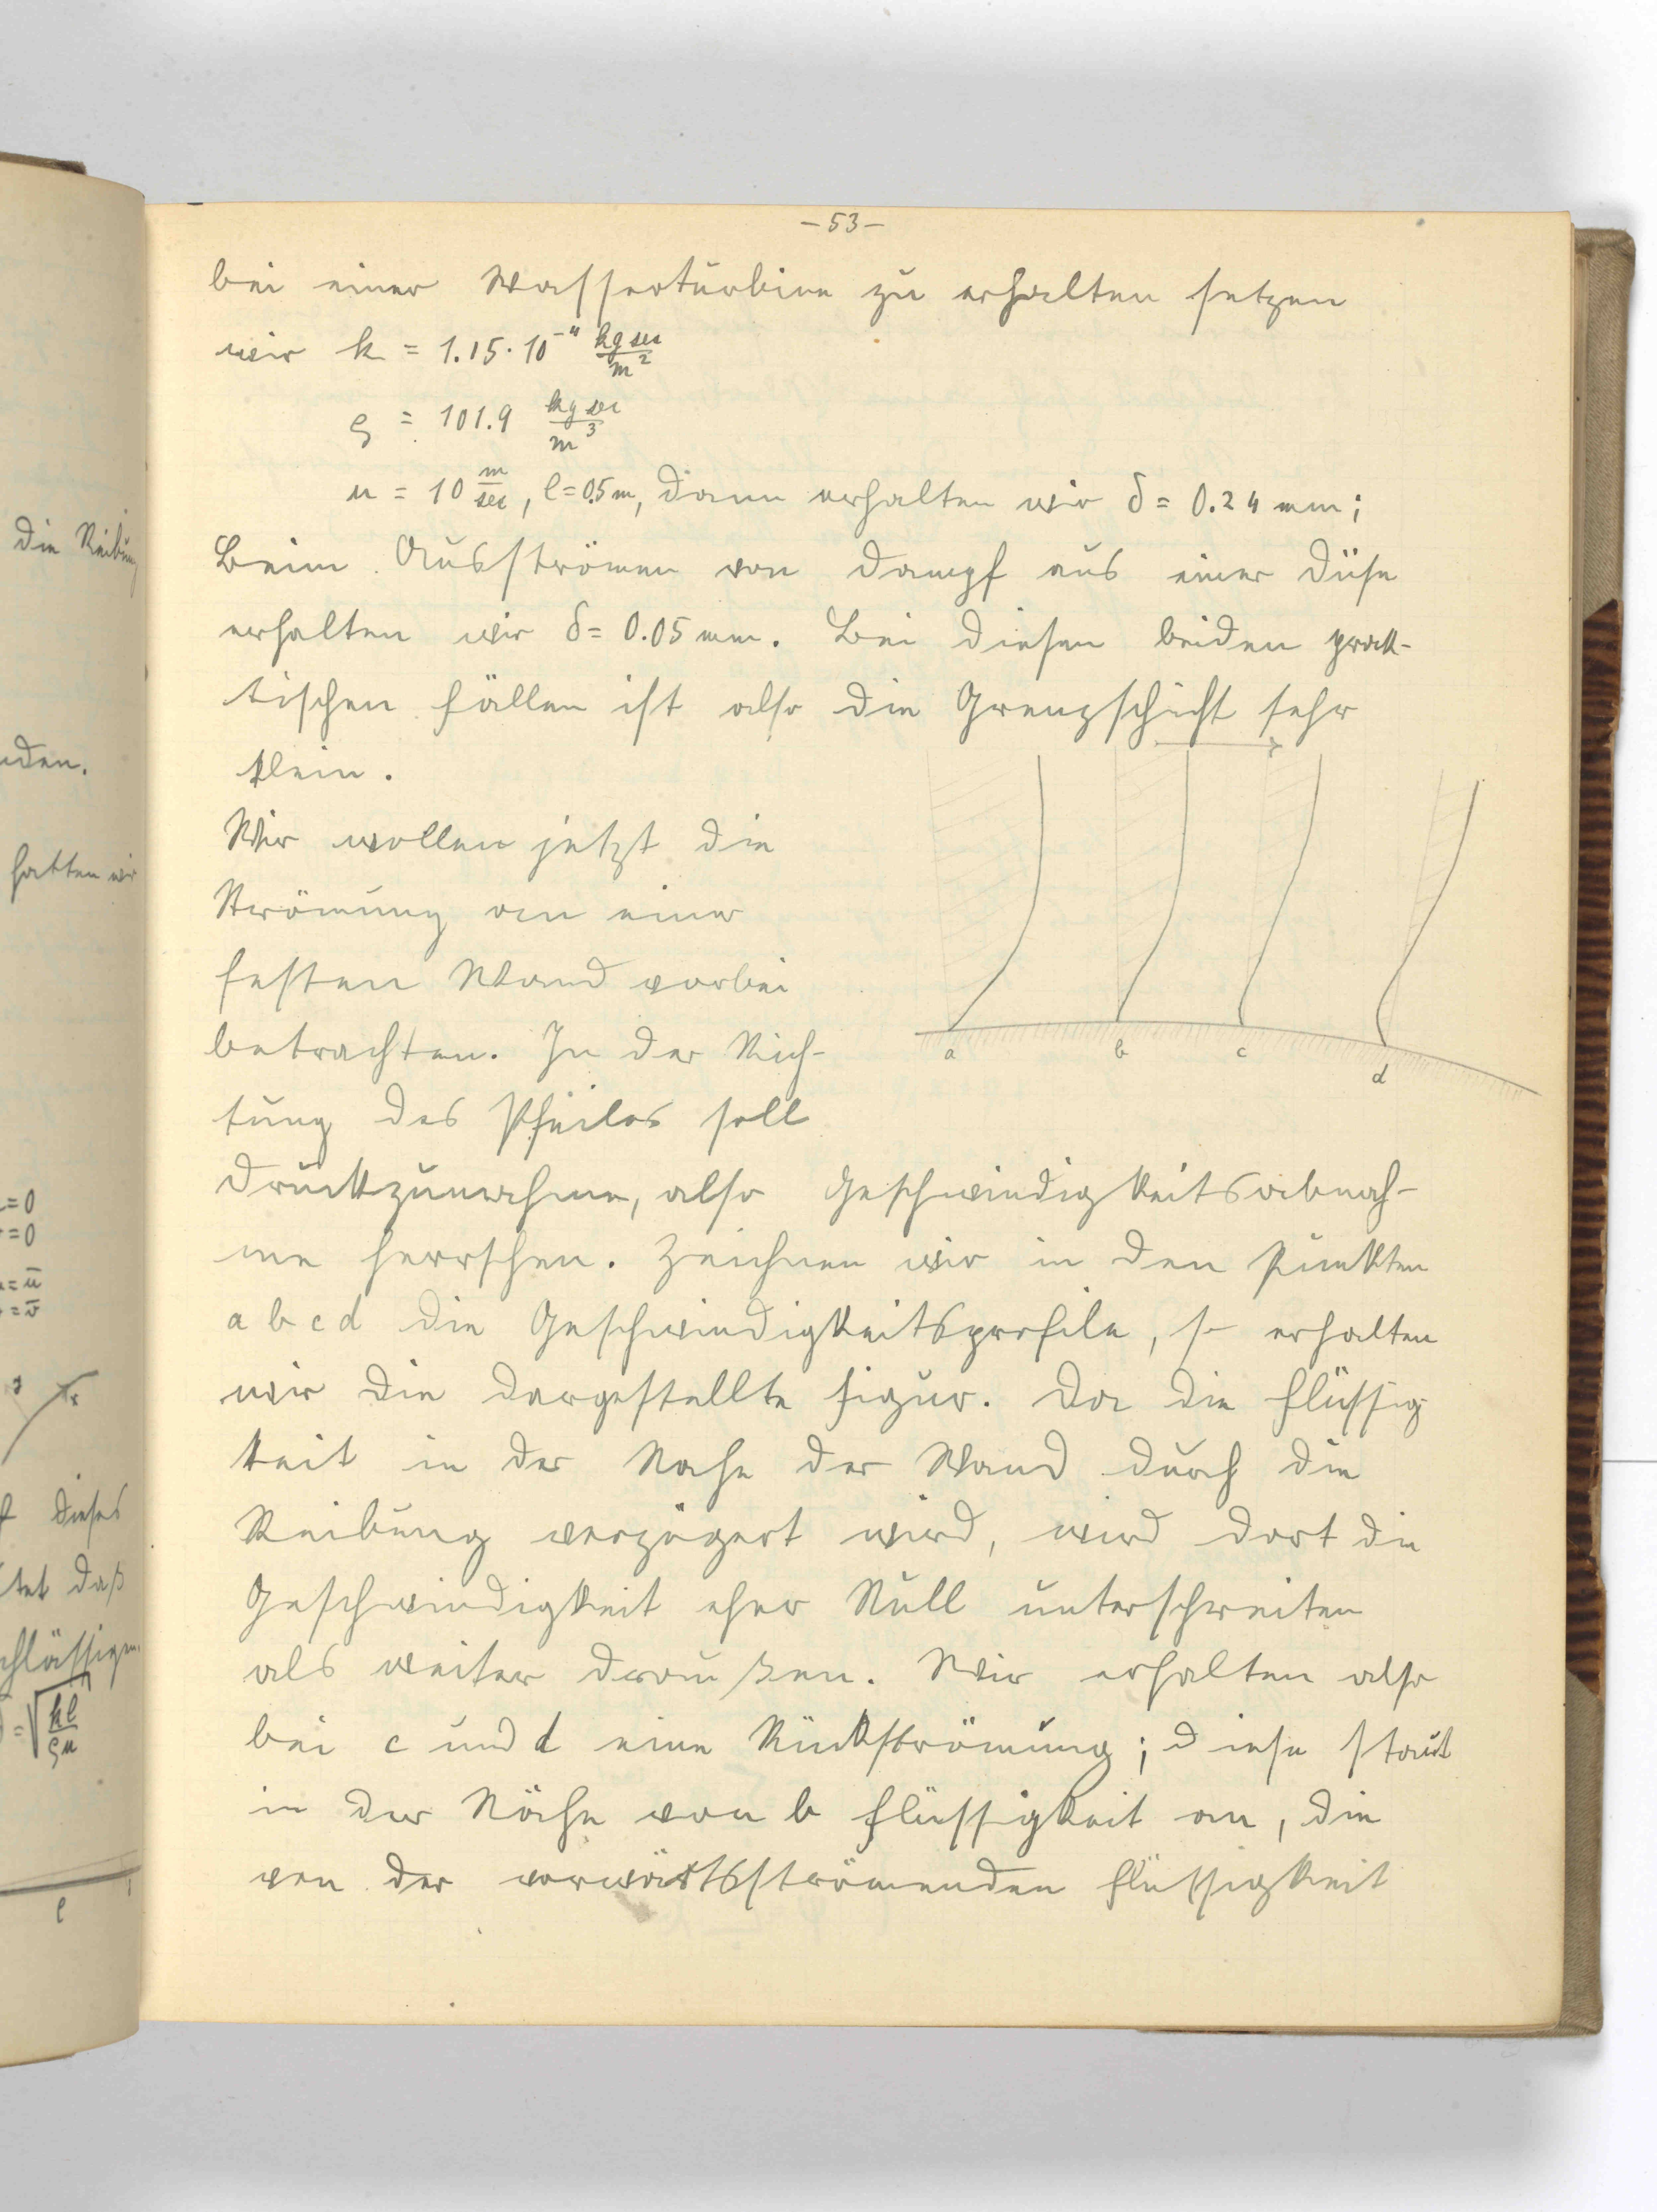 - 53 -
bei einer Wasserturbine zu erhalten setzen
wir k = 1.15·10⁻⁴ kg sec/m²
ρ = 101.9 kg sec/m³
u = 10 m/sec, l = 0.5 m, dann erhalten wir δ = 0.24 mm;
Beim Ausströmen von Dampf aus einer Düse
erhalten wir δ = 0.05 mm. Bei diesen beiden prak-
tischen Fällen ist also die Grenzschicht sehr
klein.
Wir wollen jetzt die
Strömung an einer
festen Wand vorbei
betrachten. In der Rich-
tung des Pfeiles soll
Druckzunahme, also Geschwindigkeitsabnah-
me herrschen. Zeichnen wir in den Punkten
a b c d die Geschwindigkeitsprofile, so erhalten
wir die dargestellte Figur. Da die Flüssig
keit in der Nahe der Wand durch die
Reibung verzögert wird, wird dort die
Geschwindigkeit eher Null unterschreiten
als weiter draußen. Wir erhalten also
bei c und d eine Rückströmung; diese staut
in der Nähe von b Flüssigkeit an, die
von der vorwärtsströmenden Flüssigkeit
a b c d
die Reibung
hatten wir
=0
=0
= ū
= v̄
dieses
daß
= √(kl/ρu)
l